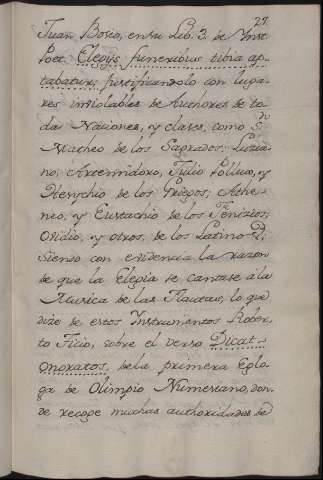 27.
Juan Bosio, en su Lib. 3. de Inst.
Poet. Elegijs funeribus tibia ap-
tabatur; justificandolo con luga-
res inviolables de Authores de to-
da Naciones, y clases, como Sn.
Matheo de los Sagrados; Luzia
no, Artemidoro, Julio Pollux, y
Hesychio de los Griegos; Athe-
neo, y Eustachio de los Fenizios;
Ovidio, y otros, de los Latinos;
Siendo con evidencia la razon
de que la Elegia se cantase à la
Musica de las Flautas, lo que
dize de estos Instrumentos Rober-
to Ticio, sobre el verso Dicat
onoratos, de la primera Eglo-
ga de Olimpio Nemesiano, don-
de recoge muchas authoridades de